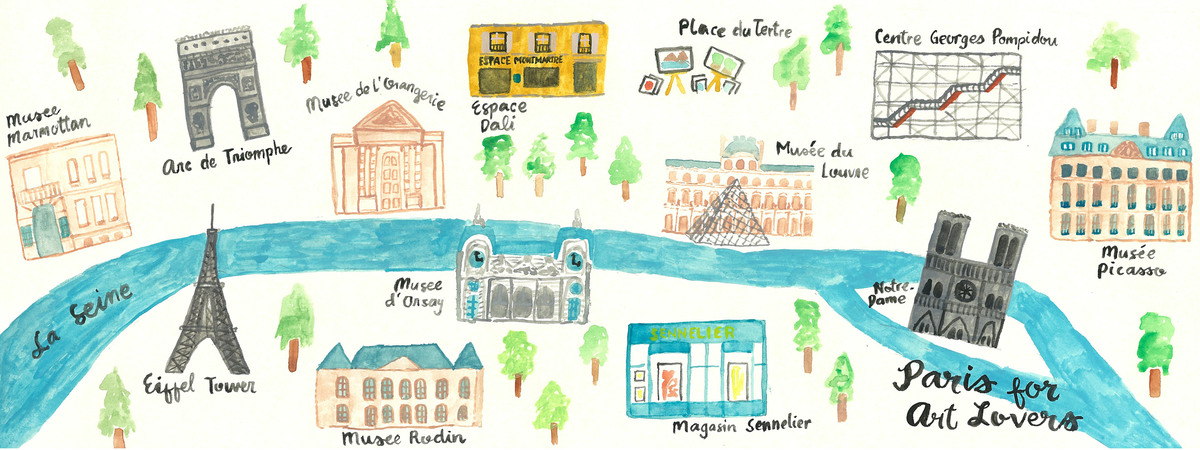 Musee
Marmottan
Arc de Triomphe
Musee de l'Orangerie
ESPACE MONTMARTRE
Espace
Dali
Place du Tertre
Centre Georges Pompidou
Musée du
Louvre
Musée
Picasso
La Seine
Eiffel Tower
Musee
d'Orsay
Notre-
Dame
Musee Rodin
SENNELIER
Magasin Sennelier
Paris for
Art Lovers